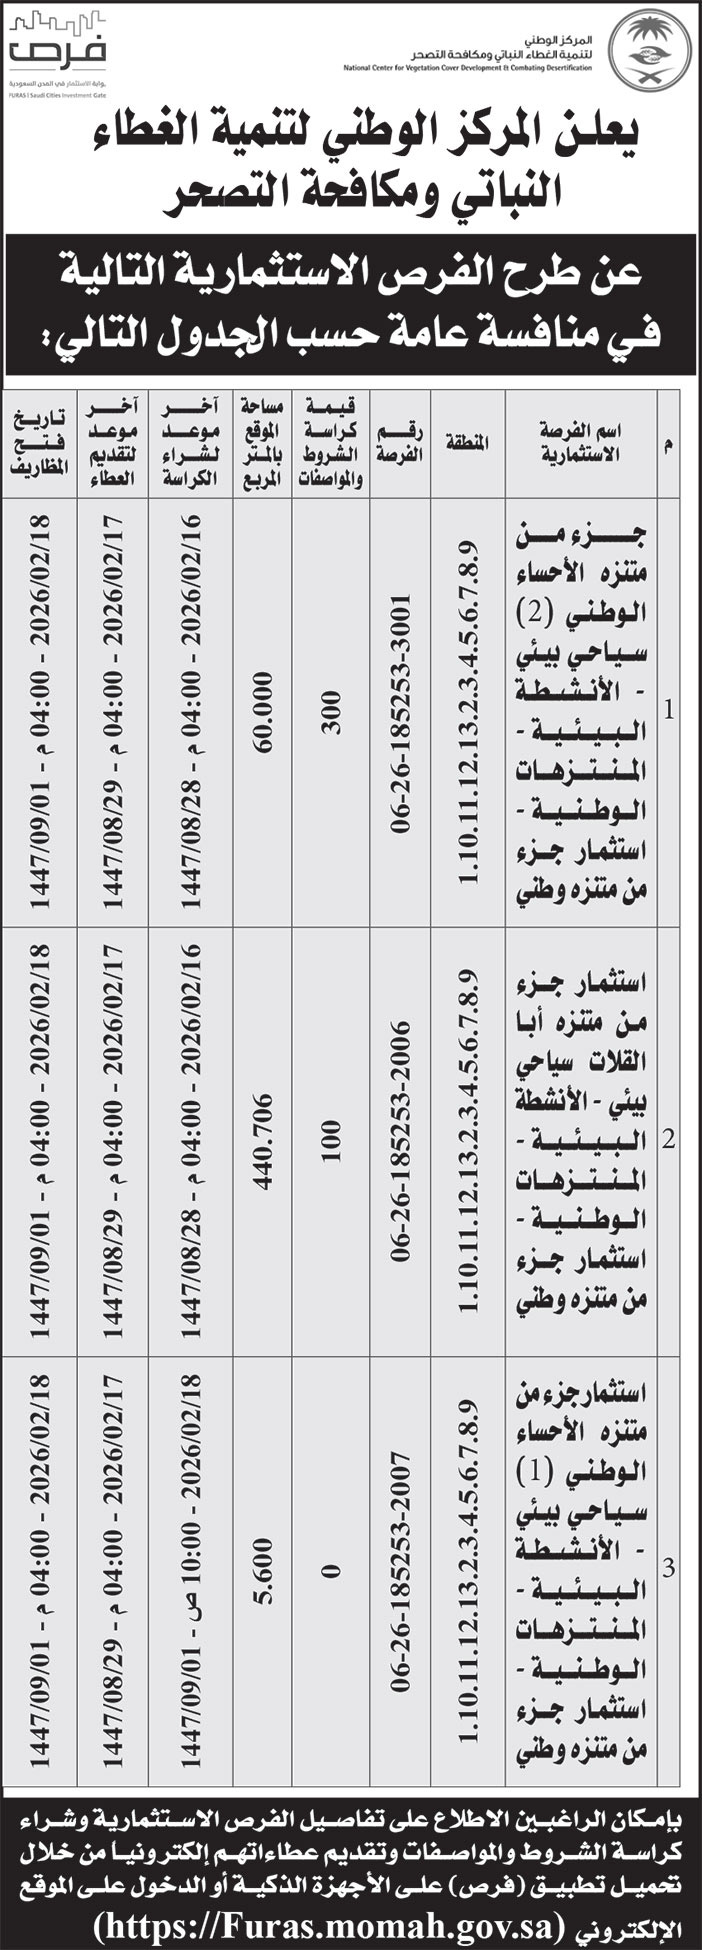 فرص
بوابة الاستثمار في المدن السعودية
FURAS | Saudi Cities Investment Gate
المركز الوطني
لتنمية الغطاء النباتي ومكافحة التصحر
National Center for Vegetation Cover Development & Combating Desertification
يعلن المركز الوطني لتنمية الغطاء
النباتي ومكافحة التصحر
عن طرح الفرص الاستثمارية التالية
في منافسة عامة حسب الجدول التالي:
م
اسم الفرصة
الاستثمارية
المنطقة
رقم
الفرصة
قيمة
كراسة
الشروط
والمواصفات
مساحة
الموقع
بالمتر
المربع
آخر
موعد
لشراء
الكراسة
آخر
موعد
لتقديم
العطاء
تاريخ
فتح
المظاريف
1
جزء من
متنزه الأحساء
الوطني (2)
سياحي بيئي
- الأنشطة
البيئية -
المنتزهات
الوطنية -
استثمار جزء
من متنزه وطني
1.10.11.12.13.2.3.4.5.6.7.8.9
06-26-185253-3001
300
60.000
2026/02/16 - 04:00 م - 1447/08/28
2026/02/17 - 04:00 م - 1447/08/29
2026/02/18 - 04:00 م - 1447/09/01
2
استثمار جزء
من متنزه أبا
القلات سياحي
بيئي - الأنشطة
البيئية -
المنتزهات
الوطنية -
استثمار جزء
من متنزه وطني
1.10.11.12.13.2.3.4.5.6.7.8.9
06-26-185253-2006
100
440.706
2026/02/16 - 04:00 م - 1447/08/28
2026/02/17 - 04:00 م - 1447/08/29
2026/02/18 - 04:00 م - 1447/09/01
3
استثمار جزء من
متنزه الأحساء
الوطني (1)
سياحي بيئي
- الأنشطة
البيئية -
المنتزهات
الوطنية -
استثمار جزء
من متنزه وطني
1.10.11.12.13.2.3.4.5.6.7.8.9
06-26-185253-2007
0
5.600
2026/02/18 - 10:00 ص - 1447/09/01
2026/02/17 - 04:00 م - 1447/08/29
2026/02/18 - 04:00 م - 1447/09/01
بإمكان الراغبين الاطلاع على تفاصيل الفرص الاستثمارية وشراء
كراسة الشروط والمواصفات وتقديم عطاءاتهم إلكترونياً من خلال
تحميل تطبيق (فرص) على الأجهزة الذكية أو الدخول على الموقع
الإلكتروني (https://Furas.momah.gov.sa)